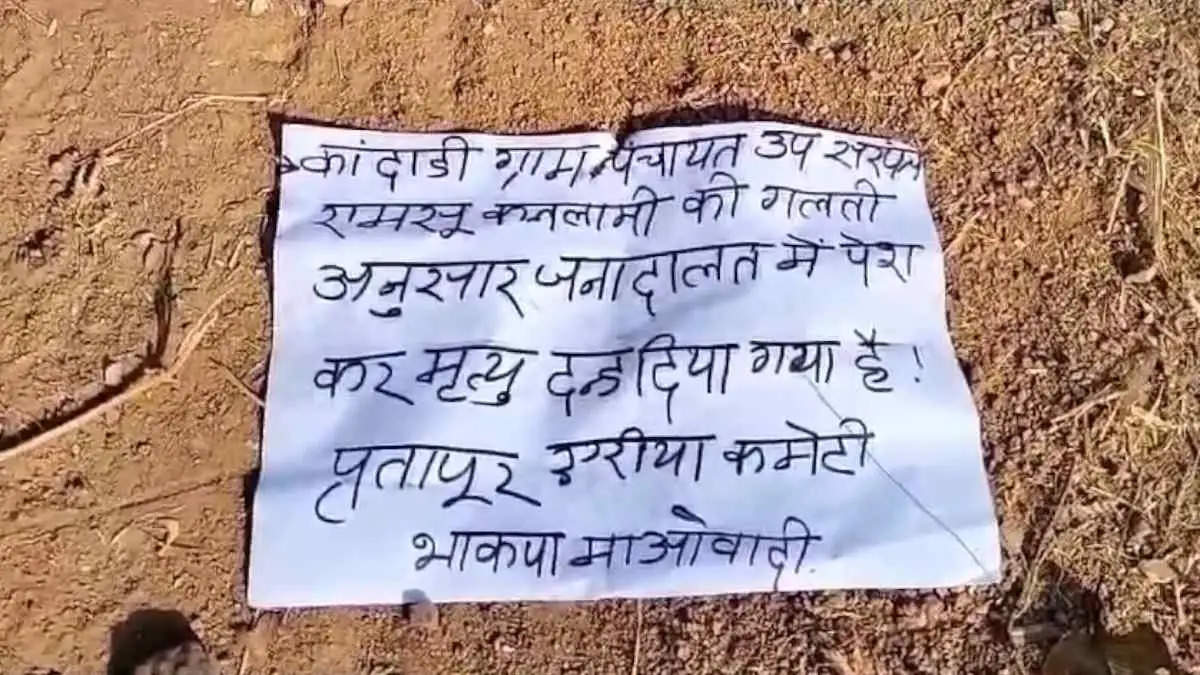 कांदाडी ग्राम पंचायत उप सरपंच
रामसू कचलामी की गलती
अनुसार जनादालत में पेश
कर मृत्यु दन्ड दिया गया है!
प्रतापूर एरीया कमेटी
भाकपा माओवादी.